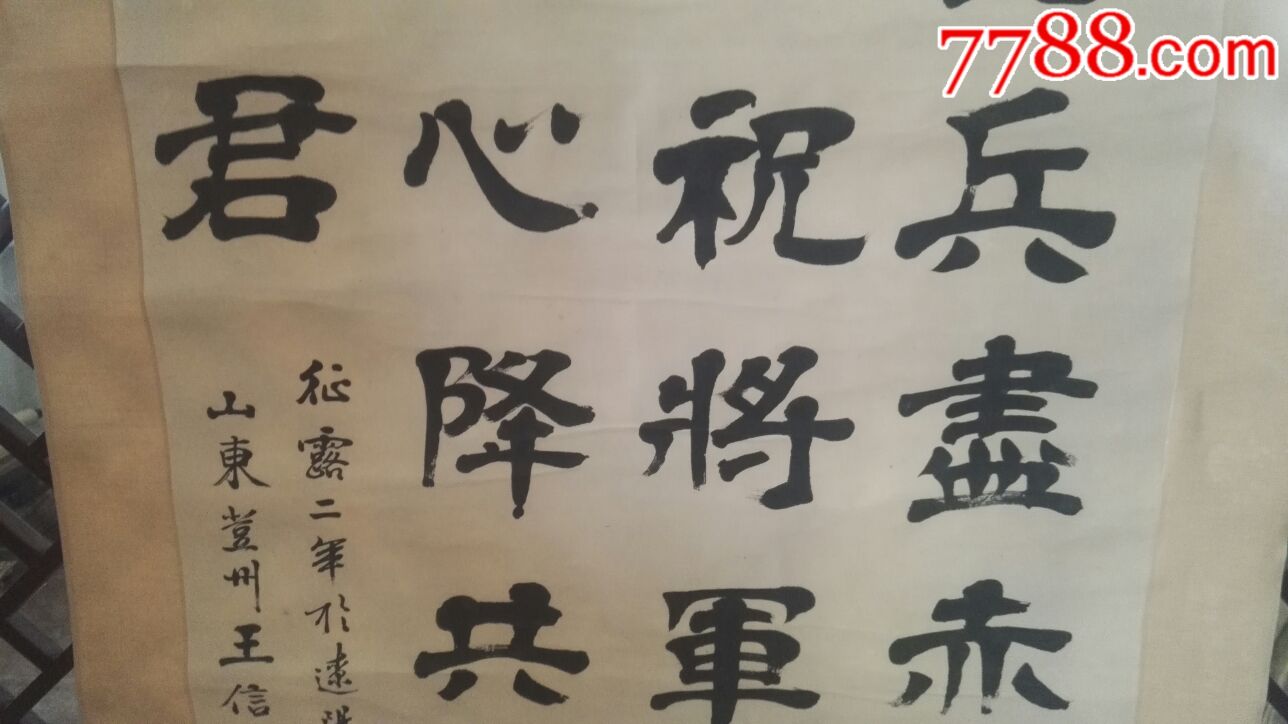 7788.com
兵盡赤
祝將軍
心降共
君
征露二年於遼陽
山東登州王信